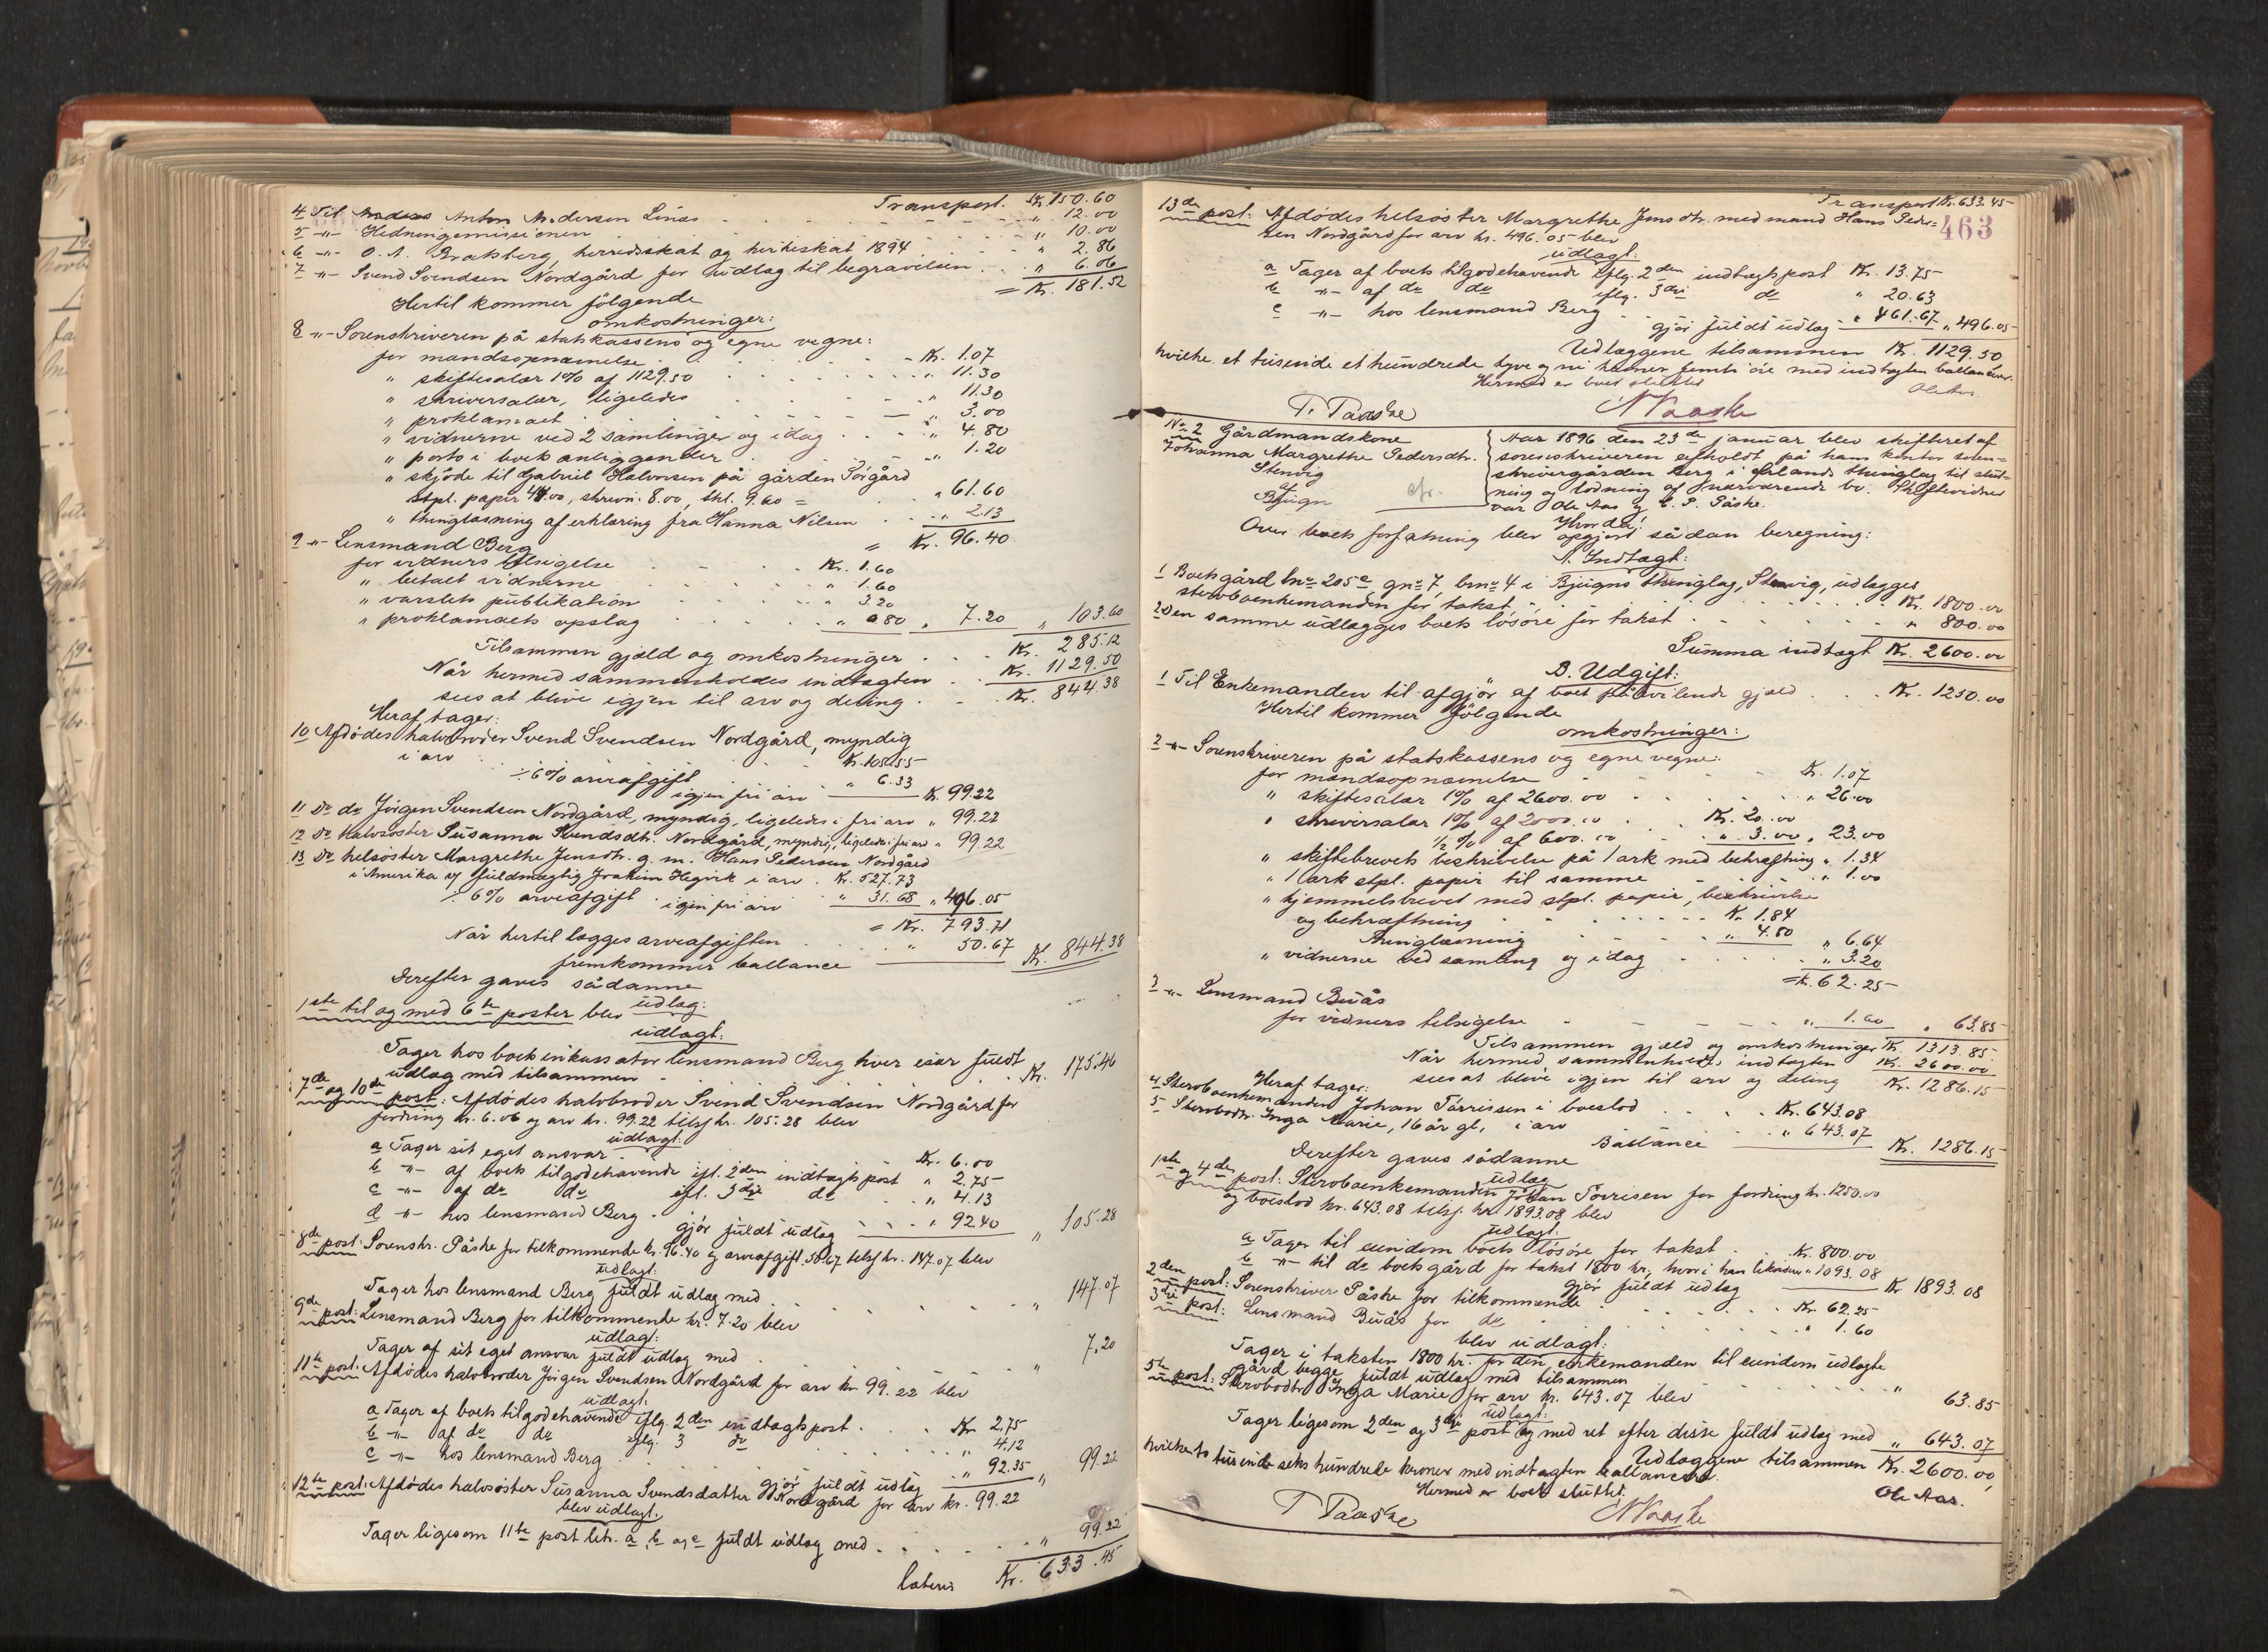 Transport. Kr. 150.60
4 Til Anton Andersen Linås " 12.00
5 -"- Hedningemissionen " 10.00
6 -"- O. A. Bratsberg, herredsskat og kirkeskat 1894 " 2.86
7 -"- Svend Svendsen Nordgård for udlæg til begravelsen " 6.06
= Kr. 181.52
Hertil kommer følgende
omkostninger:
8 -"- Sorenskriveren på statskassens og egne vegne:
for mandsopnævnelse Kr. 1.07
" skiftesalær 1% af 1129.50 " 11.30
" skriversalær, ligeledes " 11.30
" proklamaet " 3.00
" vidnerne ved 2 samlinger og idag " 4.80
" porto i boets anliggender " 1.20
" skjøde til Gabriel Halvorsen på gården Sørgård
stpl. papir 44.00, skrivn. 8.00, thl. 9.60 = " 61.60
" thinglæsning af erklæring fra Hanna Nilsen " 2.13
= Kr. 96.40
9 -"- Lensmand Berg
for vidners tilsigelse Kr. 1.60
" betalt vidnerne " 1.60
" varslets publikation " 3.20
" proklamaets opslag " 0.80 " 7.20 " 103.60
Tilsammen gjæld og omkostninger Kr. 285.12
Når hermed sammenholdes indtægten Kr. 1129.50
sees at blive igjen til arv og deling Kr. 844.38
Heraf tager:
10 Afdødes halvbroder Svend Svendsen Nordgård, myndig
i arv Kr. 105.55
÷ 6% arveafgift " 6.33
igjen fri arv Kr. 99.22
11 Do do Jørgen Svendsen Nordgård, myndig, ligeledes i fri arv " 99.22
12 Do halvsøster Susanna Svendsdtr. Nordgård, myndig, ligeleds i fri arv " 99.22
13 Do helsøster Margrethe Jensdtr. g. m. Hans Pedersen Nordgård
i Amerika v/ fuldmægtig Joakim Hegvik i arv Kr. 527.73
÷ 6% arveafgift " 31.68
igjen fri arv " 496.05
= Kr. 793.71
Når hertil lægges arveafgiften " 50.67
fremkommer ballance Kr. 844.38
Derefter gaves sådanne
udlæg:
1ste til og med 6te poster blev
udlagt:
Tager hos boets inkassator lensmand Berg hver især fuldt
udlæg med tilsammen Kr. 175.46
7de og 10de post: Afdødes halvbroder Svend Svendsen Nordgård for
fordring kr. 6.06 og arv kr. 99.22 tilsj kr. 105.28 blev
udlagt:
a Tager sit eget ansvar Kr. 6.00
b -"- af boets tilgodehavende ifl. 2den indtægtspost " 2.75
c -"- af do do ifl. 3die do " 4.13
d -"- hos lensmand Berg " 92.40
gjør fuldt udlæg " 105.28
8de post: Sorenskr. Påske for tilkommende kr. 96.40 og arveafgift 50.67 tilsj kr. 147.07 blev
udlagt:
Tager hos lensmand Berg fuldt udlæg med " 147.07
9de post: Lensmand Berg for tilkommende kr. 7.20 blev
udlagt:
Tager af sit eget ansvar fuldt udlæg med " 7.20
11te post: Afdødes halvbroder Jørgen Svendsen Nordgård for arv kr. 99.22 blev
udlagt:
a Tager af boets tilgodehavende iflg. 2den indtægtspost Kr. 2.75
b -"- af do do iflg. 3 do " 4.12
c -"- hos lensmand Berg " 92.35
gjør fuldt udlæg " 99.22
12te post: Afdødes halvsøster Susanna Svendsdatter Nordgård for arv kr. 99.22
blev udlagt:
Tager ligesom 11te post litr. a, b og c fuldt udlæg med " 99.22
lateris Kr. 633.45
Transport Kr. 633.45
463
13de post: Afdødes helsøster Margrethe Jensdtr. med mand Hans Peder=
sen Nordgård for arv kr. 496.05 blev
udlagt:
a Tager af boets tilgodehavende iflg. 2den indtægtspost Kr. 13.75
b -"- af do do iflg. 3die do " 20.63
c -"- hos lensmand Berg " 461.67
gjør fuldt udlæg " 496.05
Udlæggene tilsammen Kr. 1129.50
hvilke et tusinde et hundrede tyve og ni kroner femti øre med indtægten ballancerer.
Hermed er boet sluttet
Ole Aas
T. Paaske
N Paaske
No 2 Gårdmandskone
Johanna Margrethe Pedersdtr.
Stenvig
af
Bjugn
cfr.
Aar 1896 den 23de januar blev skifteret af
sorenskriveren afholdt på hans kontor soren=
skrivergården Berg i Ørlands thinglag til slut=
ning og lodning af nærværende bo. Skiftevidner
var Ole Aas og C. P. Påske.
Hvorda:
Over boets forfatning blev opgjort sådan beregning:
A. Indtægt:
1 Boets gård lno 205e, gno 7, bno 4 i Bjugns thinglag, Stenvig, udlægges
sterboenkemanden for takst Kr. 1800.00
2 Den samme udlægges boets løsøre for takst " 800.00
Summa indtægt Kr. 2600.00
B. Udgift:
1 Til Enkemanden til afgjør af boet påhvilende gjæld Kr. 1250.00
Hertil kommer følgende
omkostninger:
2 -"- Sorenskriveren på statskassens og egne vegne:
for mandsopnævnelse Kr. 1.07
" skiftesalær 1% af 2600.00 " 26.00
" skriversalær 1% af 2000.00 Kr. 20.00
1/2% af 600.00 " 3.00 " 23.00
" skiftebrevets beskrivelse på 1 ark med bekræftning " 1.34
" 1 ark stpl. papir til samme " 1.00
" hjemmelsbrevet med stpl. papir, beskrivelse
og bekræftning Kr. 1.84
thinglæsning " 4.80 " 6.64
" vidnerne ved samling og idag " 3.20
= Kr. 62.25
3 -"- Lensmand Buås
for vidners tilsigelse " 1.60 " 63.85
Tilsammen gjæld og omkostninger Kr. 1313.85
Når hermed sammenholdes indtægten Kr. 2600.00
sees at blive igjen til arv og deling Kr. 1286.15
Heraf tager:
4 Sterboenkemanden Johan Tørrissen i boeslod Kr. 643.08
5 Sterbodtr. Inga Marie, 16 år gl., i arv " 643.07
Ballance Kr. 1286.15
Derefter gaves sådanne
udlæg
1ste og 4de post: Sterboenkemanden Johan Tørrisen for fordring kr. 1250.00
og boeslod kr. 643.08 tilsj. kr. 1893.08 blev
udlagt:
a Tager til eiendom boets løsøre for takst Kr. 800.00
b -"- til do boets gård for takst 1800 kr., hvori han likviderer " 1093.08
gjør fuldt udlæg Kr 1893.08
2den post: Sorenskriver Påske for tilkommende Kr. 62.25
3die post: Lensmand Buås for do " 1.60
blev udlagt:
Tager i taksten 1800 kr. for den enkemanden til eiendom udlagte
gård begge fuldt udlæg med tilsammen " 63.85
5te post: Sterbodtr. Inga Marie for arv kr. 643.07 blev
udlagt:
Tager ligesom 2den og 3die post og med ret efter disse fuldt udlæg med " 643.07
Udlæggene tilsammen Kr. 2600.00,
hvilke to tusinde seks hundrede kroner med indtægten ballancerer.
Hermed er boet sluttet.
Ole Aas.
T Paaske
N Paaske